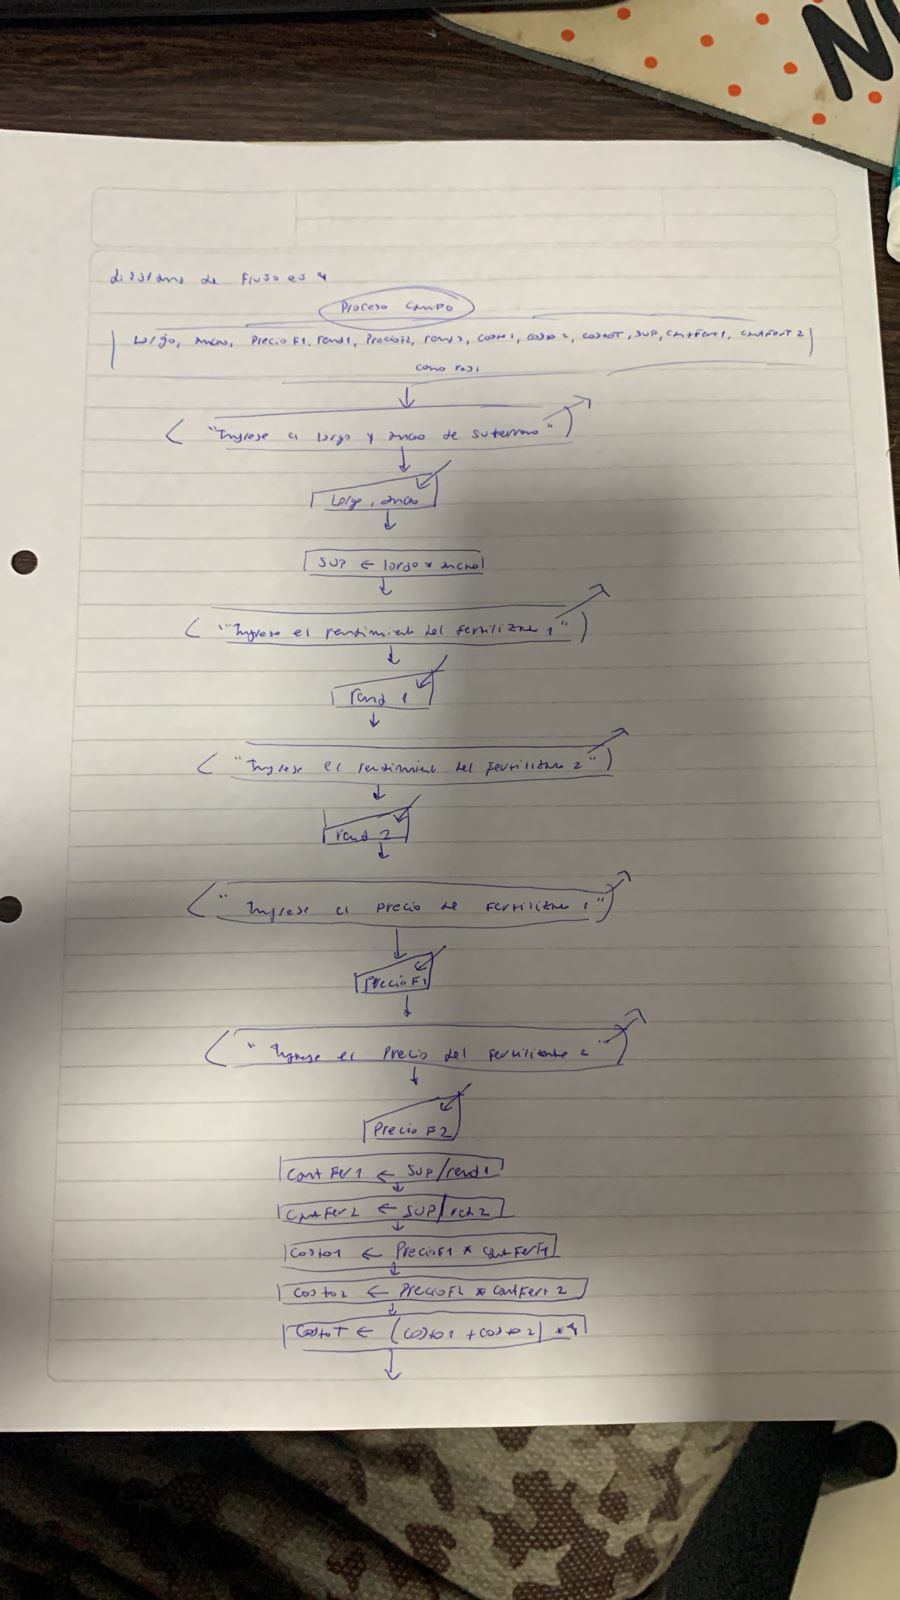 NO
diagrama de flujo ej 4
Proceso campo
largo, ancho, PrecioF1, rend1, PrecioF2, rend2, costo1, costo2, costoT, SUP, cantFert1, cantFert2
como real
"Ingrese el largo y ancho de su terreno"
largo, ancho
SUP ← largo * ancho
"Ingrese el rendimiento del fertilizante 1"
rend 1
"Ingrese el rendimiento del fertilizante 2"
rend 2
"Ingrese el precio de fertilizante 1"
PrecioF1
"Ingrese el Precio del fertilizante 2"
Precio F2
cantFer1 ← SUP/rend1
cantFer2 ← SUP/rend2
costo1 ← PrecioF1 * cantFert1
costo2 ← PrecioF2 * cantFert2
costoT ← (costo1 + costo2) * 4